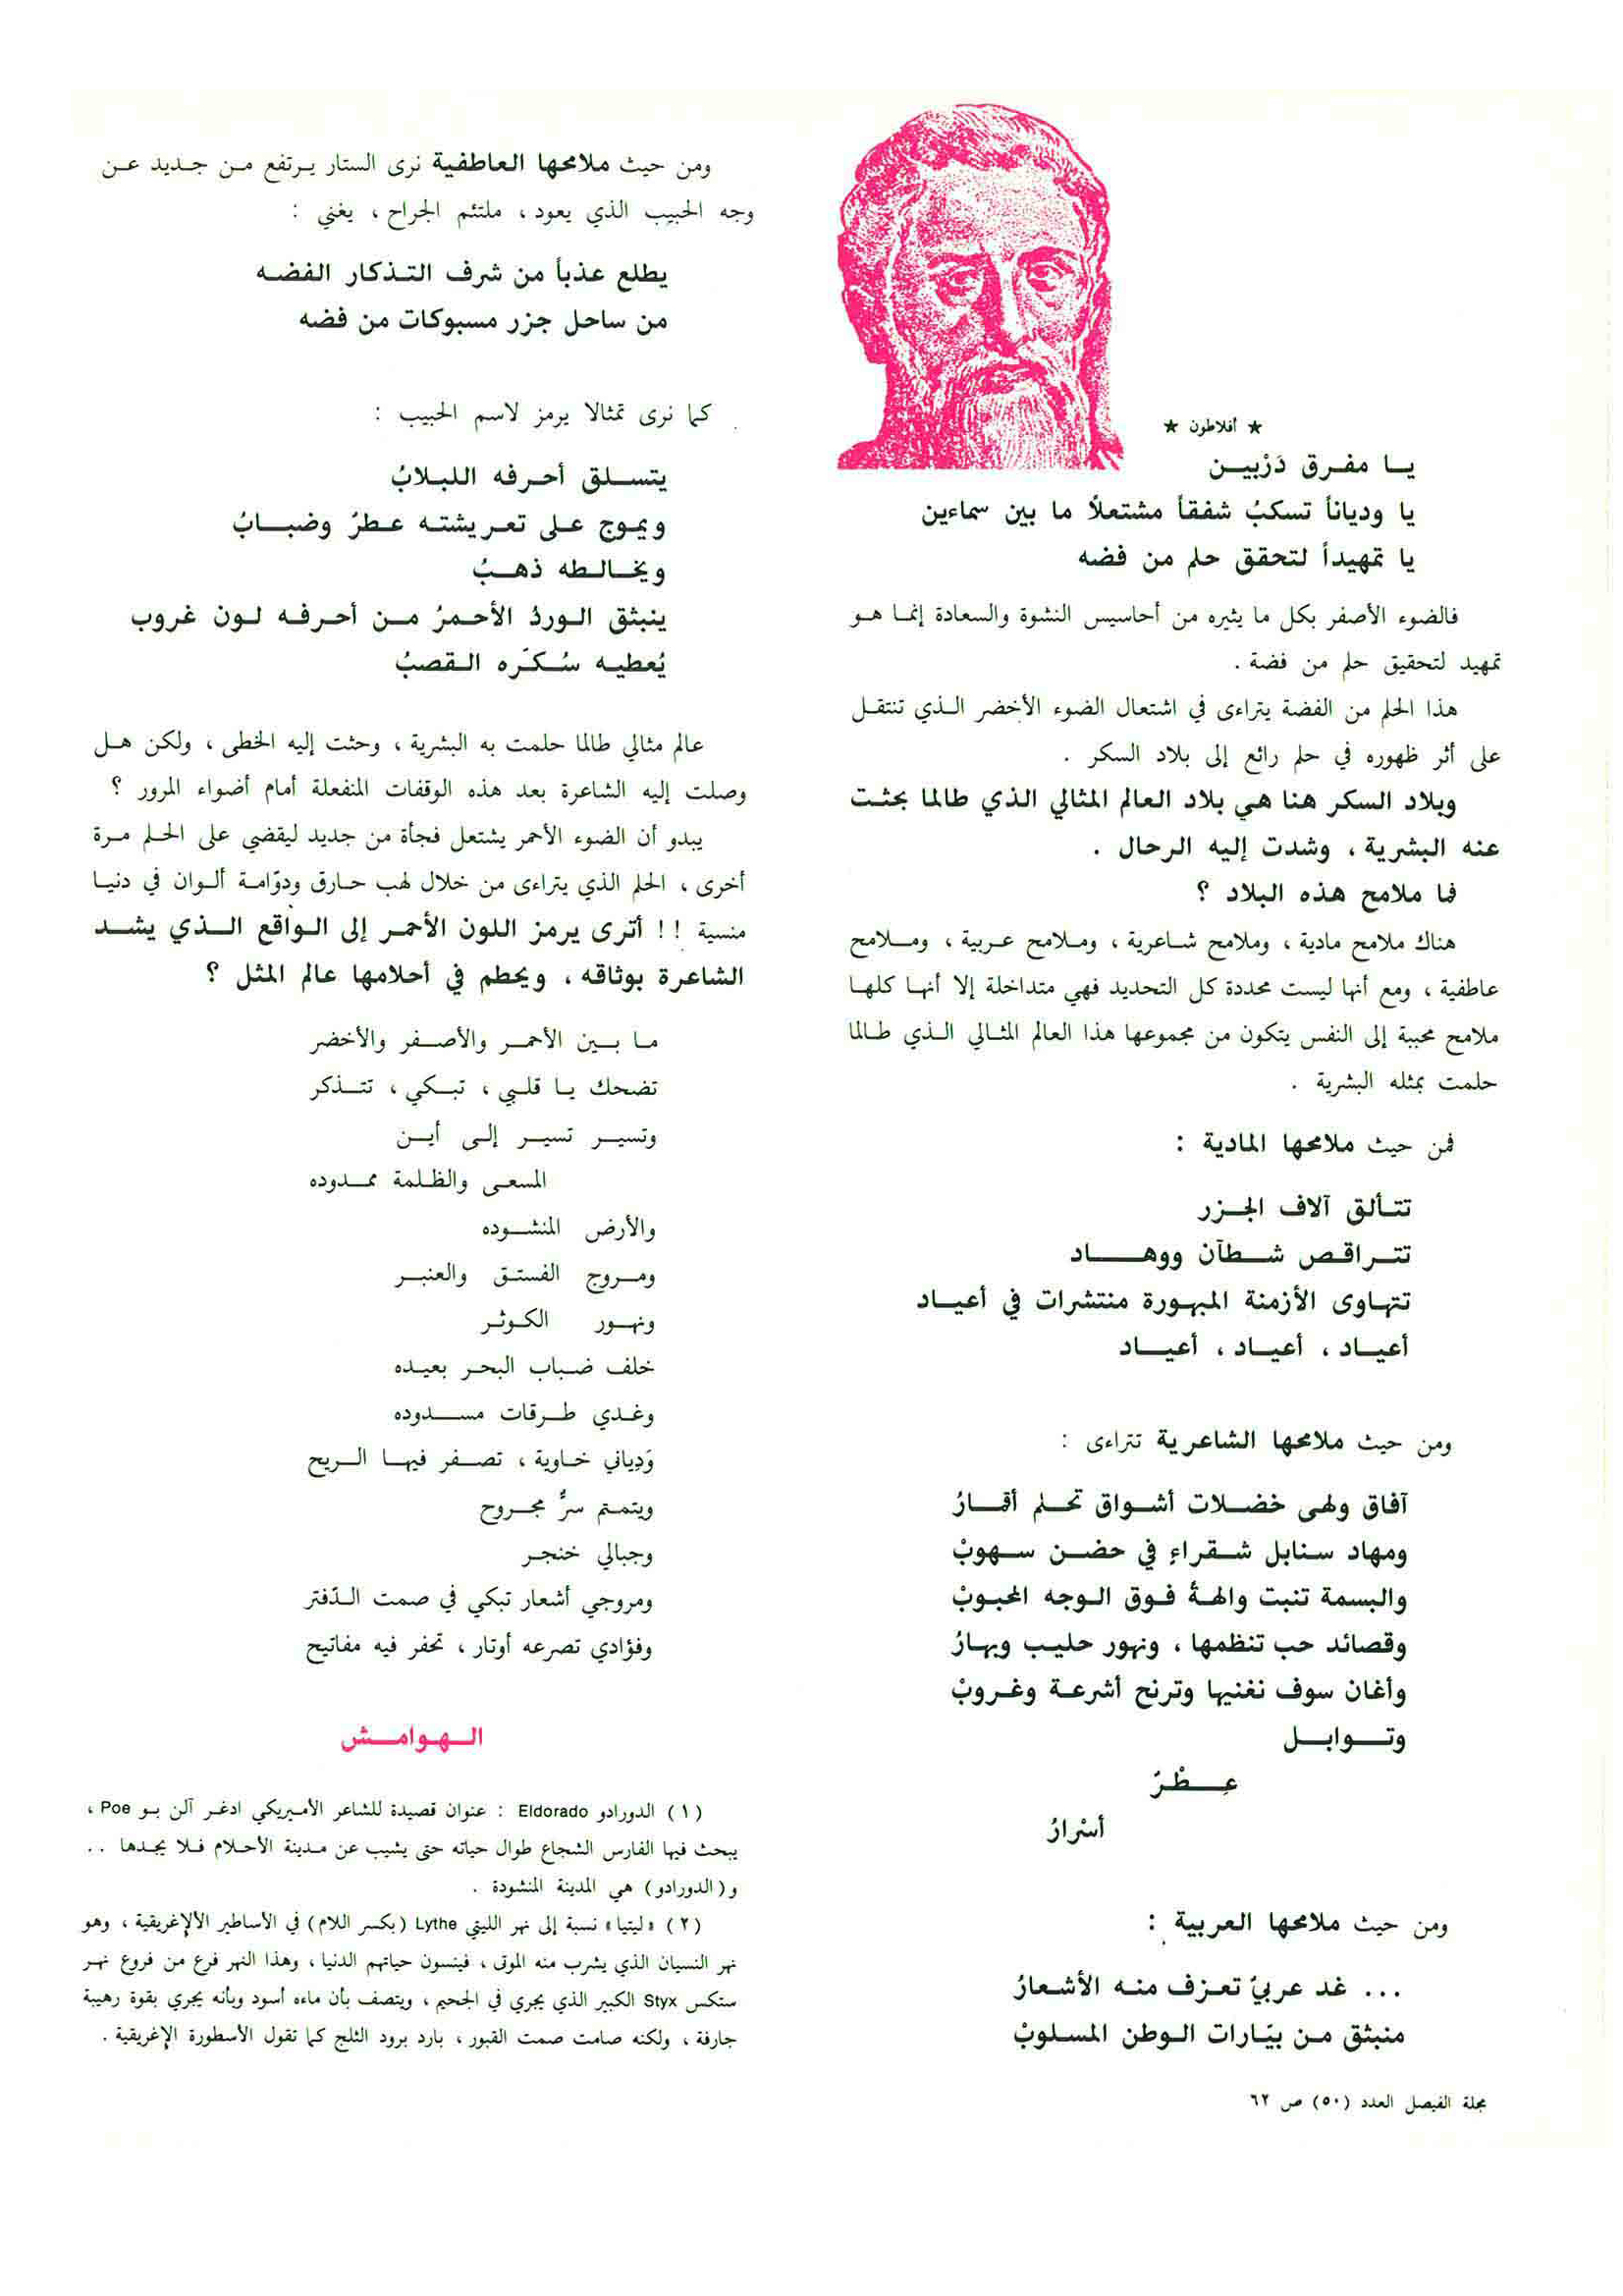 ★ أفلاطون ★
يا مفرق دَرْبين
يا ودياناً تسكبُ شفقاً مشتعلاً ما بين سماءين
يا تمهيداً لتحقق حلم من فضه
فالضوء الأصفر بكل ما يثيره من أحاسيس النشوة والسعادة إنما هو
تمهيد لتحقيق حلم من فضة .
هذا الحلم من الفضة يتراءى في اشتعال الضوء الأخضر الذي تنتقل
على أثر ظهوره في حلم رائع إلى بلاد السكر .
وبلاد السكر هنا هي بلاد العالم المثالي الذي طالما بحثت
عنه البشرية ، وشدت إليه الرحال .
فما ملامح هذه البلاد ؟
هناك ملامح مادية ، وملامح شاعرية ، وملامح عربية ، وملامح
عاطفية ، ومع أنها ليست محددة كل التحديد فهي متداخلة إلا أنها كلها
ملامح محببة إلى النفس يتكون من مجموعها هذا العالم المثالي الذي طالما
حلمت بمثله البشرية .
فمن حيث ملامحها المادية :
تتألق آلاف الجزر
تتراقص شطآن ووهاد
تتهاوى الأزمنة المبهورة منتشرات في أعياد
أعياد ، أعياد ، أعياد
ومن حيث ملامحها الشاعرية تتراءى :
آفاق ولهى خضلات أشواق تحلم أقمارُ
ومهاد سنابل شقراءِ في حضن سهوبْ
والبسمة تنبت والهةً فوق الوجه المحبوبْ
وقصائد حب تنظمها ، ونهور حليب وبهارُ
وأغان سوف نغنيها وترنح أشرعة وغروبْ
وتوابل
عِطْرٌ
أسْرارُ
ومن حيث ملامحها العربية :
... غد عربيّ تعزف منه الأشعارُ
منبثق من بيّارات الوطن المسلوبْ
مجلة الفيصل العدد (٥٠) ص ٦٢
ومن حيث ملامحها العاطفية نرى الستار يرتفع من جديد عن
وجه الحبيب الذي يعود ، ملتئم الجراح ، يغني :
يطلع عذباً من شرف التذكار الفضه
من ساحل جزر مسبوكات من فضه
كما نرى تمثالا يرمز لاسم الحبيب :
يتسلق أحرفه اللبلابُ
ويموج على تعريشته عطرٌ وضبابُ
ويخالطه ذهبُ
ينبثق الوردُ الأحمرُ من أحرفه لون غروب
يُعطيه سُكّره القصبُ
عالم مثالي طالما حلمت به البشرية ، وحثت إليه الخطى ، ولكن هل
وصلت إليه الشاعرة بعد هذه الوقفات المنفعلة أمام أضواء المرور ؟
يبدو أن الضوء الأحمر يشتعل فجأة من جديد ليقضي على الحلم مرة
أخرى ، الحلم الذي يتراءى من خلال لهب حارق ودوّامة ألوان في دنيا
منسية !! أترى يرمز اللون الأحمر إلى الواقع الذي يشد
الشاعرة بوثاقه ، ويحطم في أحلامها عالم المثل ؟
ما بين الأحمر والأصفر والأخضر
تضحك يا قلبي ، تبكي ، تتذكر
وتسير تسير إلى أين
المسعى والظلمة ممدوده
والأرض المنشوده
ومروج الفستق والعنبر
ونهور الكوثر
خلف ضباب البحر بعيده
وغدي طرقات مسدوده
وَدِياني خاوية ، تصفر فيها الريح
ويتمتم سرٌّ مجروح
وجبالي خنجر
ومروجي أشعار تبكي في صمت الدّفتر
وفؤادي تصرعه أوتار ، تحفر فيه مفاتيح
الهوامش
(١) الدورادو Eldorado : عنوان قصيدة للشاعر الأميريكي ادغر آلن بو Poe ،
يبحث فيها الفارس الشجاع طوال حياته حتى يشيب عن مدينة الأحلام فلا يجدها ..
و(الدورادو) هي المدينة المنشودة .
(٢) «ليتيا» نسبة إلى نهر الليتي Lythe (بكسر اللام) في الأساطير الألإغريقية ، وهو
نهر النسيان الذي يشرب منه الموتى ، فينسون حياتهم الدنيا ، وهذا النهر فرع من فروع نهر
ستكس Styx الكبير الذي يجري في الجحيم ، ويتصف بأن ماءه أسود وبأنه يجري بقوة رهيبة
جارفة ، ولكنه صامت صمت القبور ، بارد برود الثلج كما تقول الأسطورة الإغريقية .